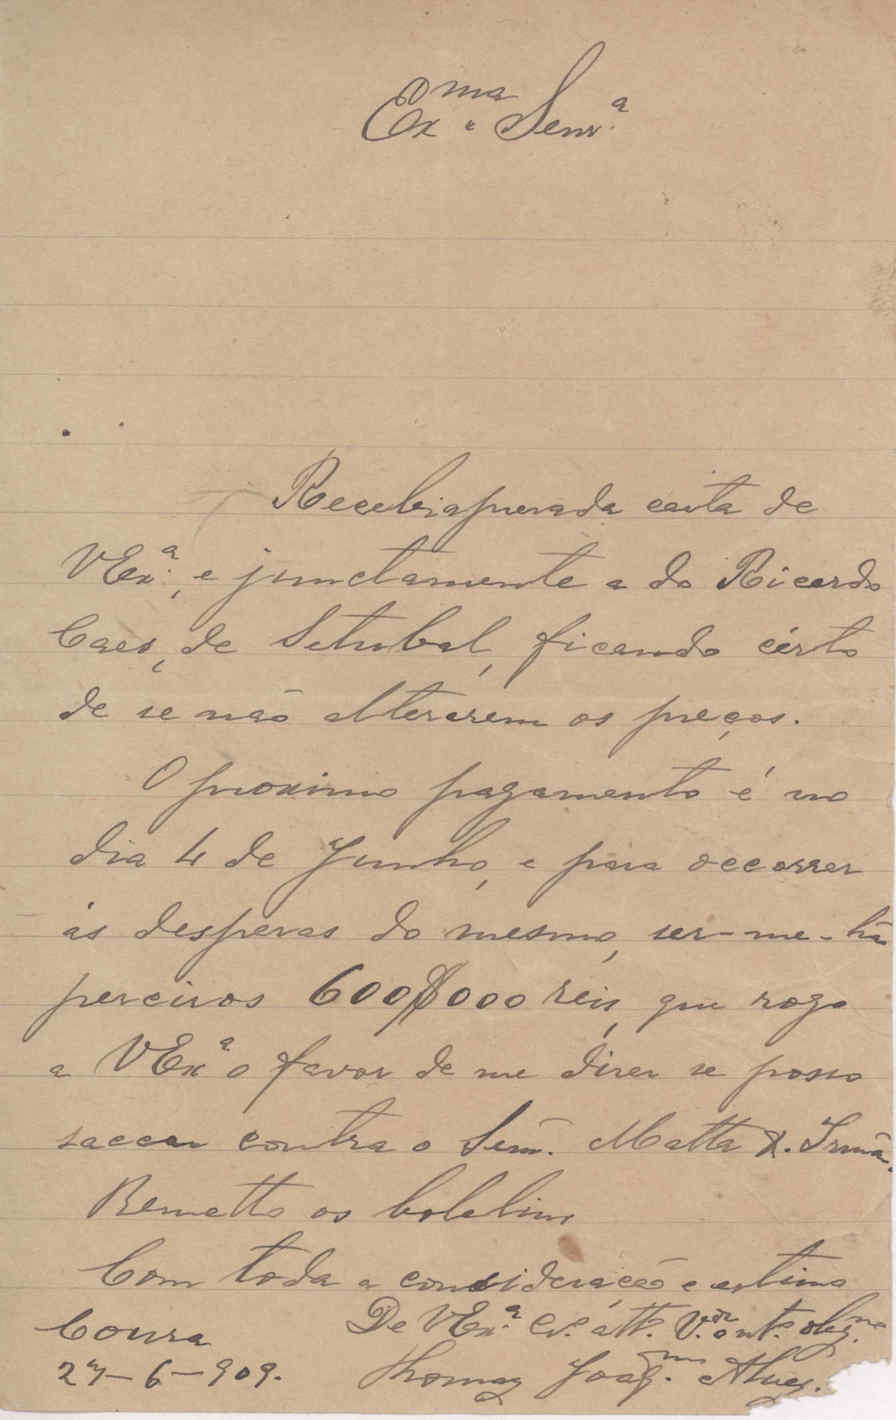 Exma Senra
Recebi a presada carta de
VExa, e junctamente a do Ricardo
Caes, de Setubal, ficando cérto
de se não alterarem os preços.
O proximo pagamento é no
dia 4 de Junho, e para occorrer
ás despezas do mesmo, ser-me-hão
percizos 600$000 réis, que rogo
a VExa o favor de me dizer se posso
saccar contra o Senr. Matta & Irmão.
Remetto os boletins
Com toda a consideração e estima
De VExa. Cr. att. Vor
Coura
Thomaz Joaqm. Alves.
27-6-909.